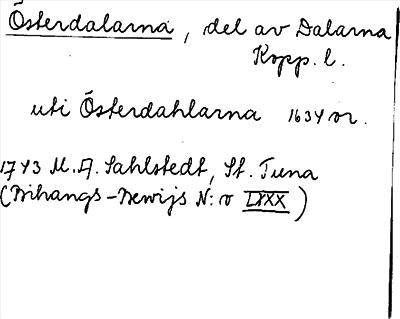 Österdalarna, del av Dalarna
Kopp. l.
uti Österdahlarna 1634 or.
1743 M. A. Sahlstedt, St. Tuna
(Bihangs-Bewijs N:o LXXX)